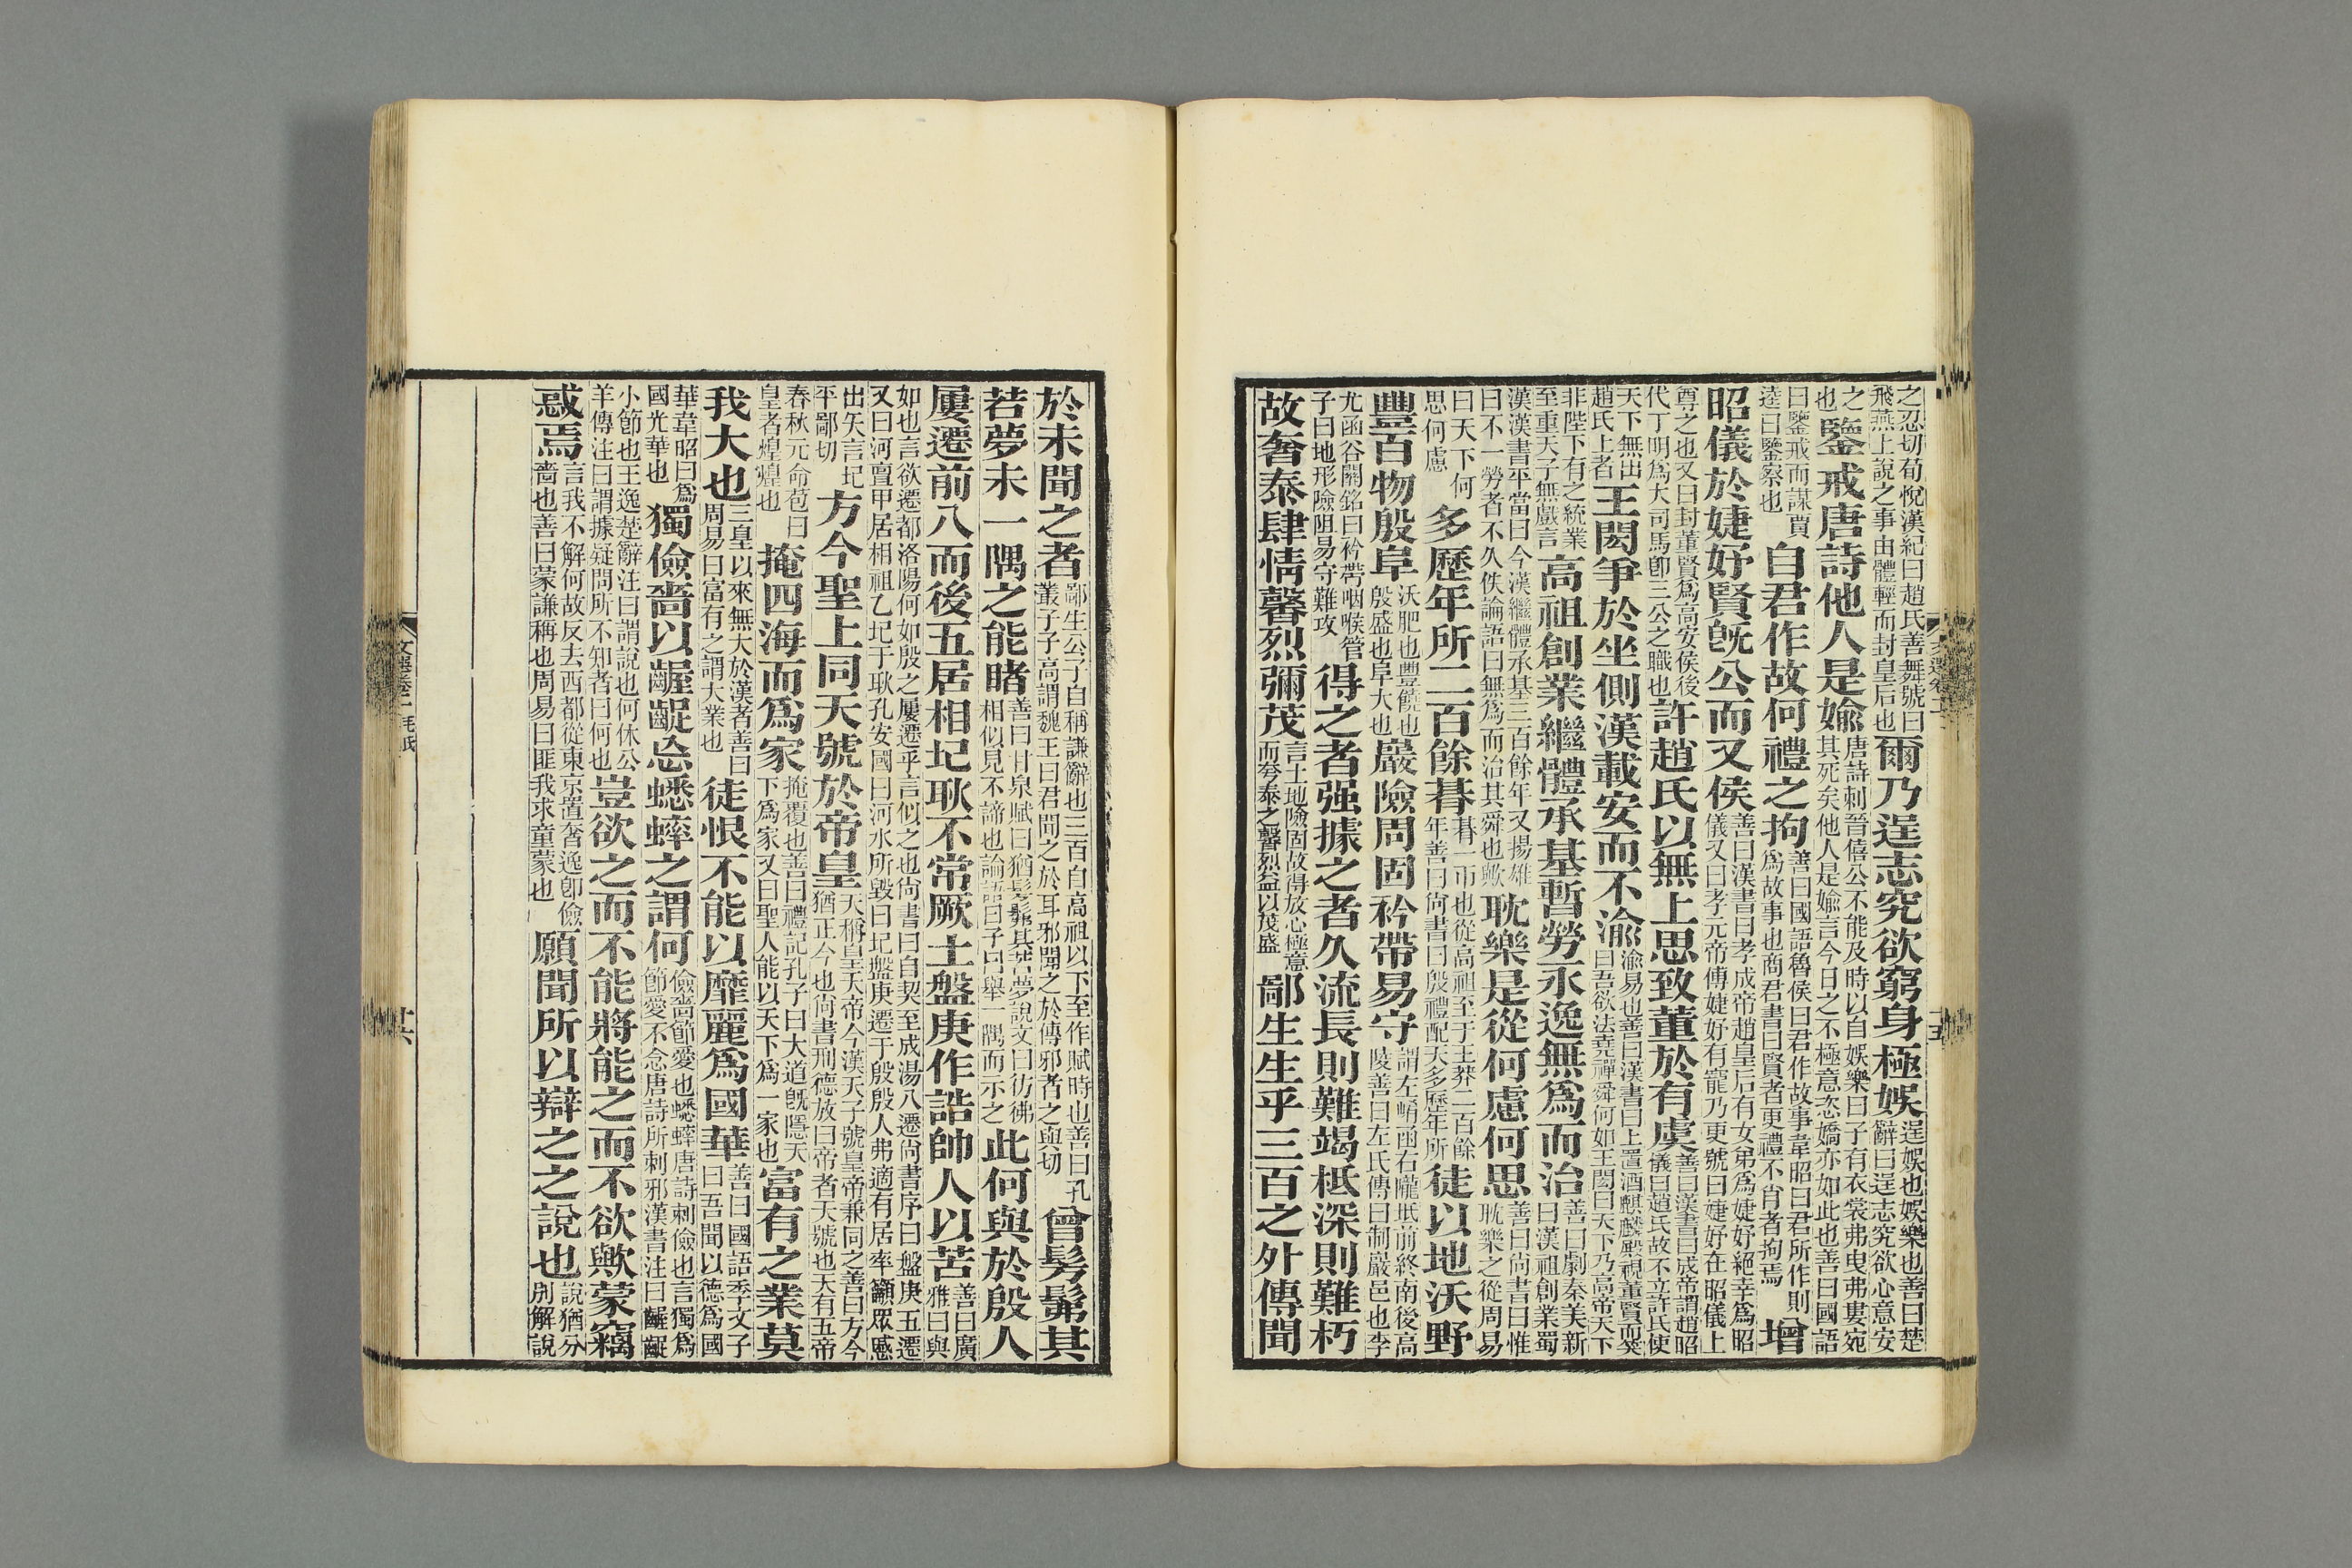 之忍切荀悅漢紀曰趙氏善舞號曰飛燕上說之事由體輕而封皇后也爾乃逞志究欲窮身極娛逞娛也娛樂也善曰楚辭曰逞志究欲心意安
之也鑒戒唐詩他人是媮唐詩刺晉僖公不能及時以自娛樂曰子有衣裳弗曳弗婁宛其死矣他人是媮言今日之不極意恣嬌亦如此也善曰國語
曰鑒戒而謀賈逵曰鑒察也自君作故何禮之拘善曰國語魯侯曰君作故事韋昭曰君所作則爲故事也商君書曰賢者更禮不肖者拘焉增
昭儀於婕妤賢旣公而又侯善曰漢書曰孝成帝趙皇后有女弟爲婕妤絕幸爲昭儀又曰孝元帝傅婕妤有寵乃更號曰婕妤在昭儀上
尊之也又曰封董賢爲高安侯後代丁明爲大司馬卽三公之職也許趙氏以無上思致董於有虞善曰漢書曰成帝謂趙昭儀曰趙氏故不立許氏使
天下無出趙氏上者王閎爭於坐側漢載安而不渝渝易也善曰漢書曰上置酒麒麟殿視董賢而笑曰吾欲法堯禪舜何如王閎曰天下乃高帝天下
非陛下有之統業至重天子無戲言高祖創業繼體承基暫勞永逸無爲而治善曰劇秦美新曰漢祖創業蜀
漢漢書平當曰今漢繼體承基三百餘年又揚雄曰不一勞者不久佚論語曰無爲而治其舜也歟耽樂是從何慮何思善曰尙書曰惟耽樂之從周易
曰天下何思何慮多歷年所二百餘朞朞一帀也從高祖至于王莽二百餘年善曰尙書曰殷禮配天多歷年所徒以地沃野
豐百物殷阜沃肥也豐饒也殷盛也阜大也巖險周固衿帶易守謂左崤函右隴坻前終南後高陵善曰左氏傳曰制巖邑也李
尤函谷關銘曰衿帶咽喉管子曰地形險阻易守難攻得之者强據之者久流長則難竭柢深則難朽
故奢泰肆情馨烈彌茂言土地險固故得放心極意而夸泰之馨烈益以茂盛鄙生生乎三百之外傳聞
於未聞之者鄙生公子自稱謙辭也三百自高祖以下至作賦時也善曰孔叢子子高謂魏王曰君問之於耳邪聞之於傳邪者之與切曾髣髴其
若夢未一隅之能睹善曰甘泉賦曰猶髣髴其若夢說文曰彷彿相似見不諦也論語曰子曰舉一隅而示之此何與於殷人
屢遷前八而後五居相圮耿不常厥土盤庚作誥帥人以苦善曰廣雅曰與
如也言欲遷都洛陽何如殷之屢遷乎言似之也尙書曰自契至成湯八遷尙書序曰盤庚五遷又曰河亶甲居相祖乙圮于耿孔安國曰河水所毀曰圮盤庚遷于殷殷人弗適有居率籲眾慼
出矢言圮平鄙切方今聖上同天號於帝皇天稱皇天帝今漢天子號皇帝兼同之善曰方今猶正今也尙書刑德放曰帝者天號也天有五帝
春秋元命苞曰皇者煌煌也掩四海而爲家掩覆也善曰禮記孔子曰大道旣隱天下爲家又曰聖人能以天下爲一家也富有之業莫
我大也三皇以來無大於漢者善曰周易曰富有之謂大業也徒恨不能以靡麗爲國華善曰國語季文子曰吾聞以德爲國
華韋昭曰爲國光華也獨儉嗇以齷齪忘蟋蟀之謂何儉嗇節愛也蟋蟀唐詩刺儉也言獨爲節愛不念唐詩所刺邪漢書注曰齷齪
小節也王逸楚辭注曰謂說也何休公羊傳注曰謂據疑問所不知者曰何也豈欲之而不能將能之而不欲歟蒙竊
惑焉言我不解何故反去西都從東京置奢逸卽儉嗇也善曰蒙謙稱也周易曰匪我求童蒙也願聞所以辯之之說也說猶分別解說